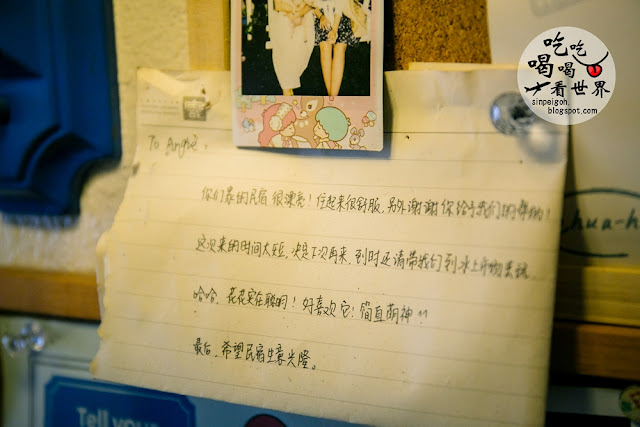 吃吃
喝喝
看世界
sinpeigoh.
blogspot.com
To
你们家的民宿很漂亮！住起来很舒服，另外谢谢你给予我们的帮助！
这次来的时间太短，决定下次再来，到时还请带我们到水上市场去玩。
哈哈，花花实在聪明！好喜欢它！简直萌神^^
最后，希望民宿生意兴隆。
hua-h
Tell your